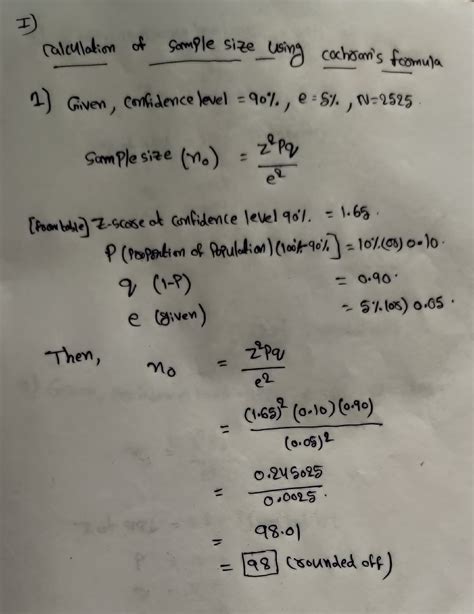 I)
Calculation of sample size using cochran's formula
1) Given, Confidence level = 90%, e = 5%, N=2525.
Sample size (n₀) = z²pq
e²
[From table] Z-score at confidence level 90%. = 1.65.
P (Proportion of Population) (100%-90%] = 10% (or) 0.10.
q (1-P) = 0.90.
e (given) = 5% (or) 0.05.
Then, n₀ = z²pq
e²
= (1.65)² (0.10) (0.90)
(0.05)²
= 0.245025
0.0025.
= 98.01
= 98 (rounded off)